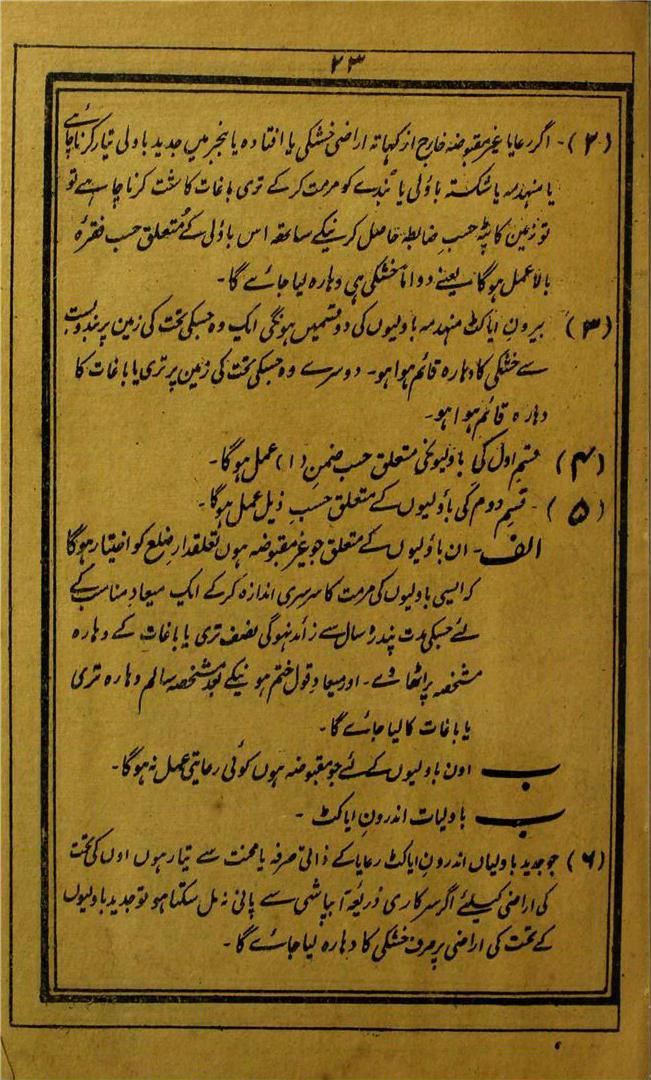 ۲۳
(۲)- اگر رعایا غیر مقبوضہ خارج از کہاتہ اراضی خشکی یا افتادہ یا بنجر میں جدید باولی تیار کرنا چاہئے
یا منہدمہ یا شکستہ باؤلی یا بُدے کو مرمت کر کے تری باغات کاشت کرنا چاہے تو
تو زمین کا پٹہ حسبِ ضابطہ حاصل کرنیکے سابقہ اس باؤلی کے متعلق حسب فقرۂ
بالا عمل ہوگا یعنے دواماً خشکی ہی دہارہ لیا جائے گا۔
(۳) بیرونِ ایاکٹ منہدمہ باولیوں کی دو قسمیں ہونگی ایک وہ جسکی تحت کی زمین پر بندوبست
سے خشکی کا دہارہ قائم ہوا ہو۔ دوسرے وہ جسکی تحت کی زمین پر تری یا باغات کا
دہارہ قائم ہوا ہو۔
(۴) قسمِ اول کی باولیونکی متعلق حسب ضمن (۱) عمل ہوگا۔
(۵)- قسمِ دوم کی باؤلیوں کے متعلق حسبِ ذیل عمل ہوگا۔
الف۔ ان باؤلیوں کے متعلق جو غیر مقبوضہ ہوں تعلقدار ضلع کو اختیار ہوگا
کہ ایسی باولیوں کی مرمت کا سرسری اندازہ کر کے ایک میعادِ مناسب کے
لئے جسکی مدت پندرہ سال سے زائد نہوگی نصف تری یا باغات کے دہارہ
مشخصہ پر اٹھا دے۔ اور میعادِ قول ختم ہونیکے بعد مشخصہ سالم دہارہ تری
یا باغات کا لیا جائے گا۔
ب اون باولیوں کے لئے جو مقبوضہ ہوں کوئی رعایتی عمل نہ ہوگا۔
ب باولیات اندرونِ ایاکٹ -
(۶) جو جدید باولیاں اندرونِ ایاکٹ رعایا کے ذاتی صرفہ یا محنت سے تیار ہوں اوں کی تحت
کی اراضی کیلئے اگر سرکاری ذریعۂ آبپاشی سے پانی نہ مل سکتا ہو تو جدید باولیوں
کے تحت کی اراضی پر صرف خشکی کا دہارہ لیا جائے گا۔